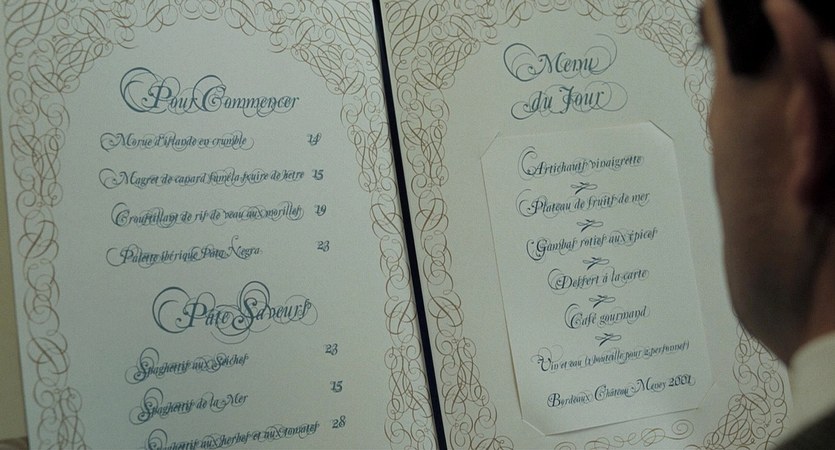 Pour Commencer
Morue d'islande en crumble 14
Magret de canard fumé la sciure de hetre 15
Croustillant de ris de veau aux morilles 19
Palette ibérique Pata Negra 23
Pâte Saveurs
Spaghettis aux Seiches 23
Spaghettis de la Mer 15
Spaghettis aux herbes et aux tomates 28
Menu
du Jour
Artichauts vinaigrette
Plateau de fruits de mer
Gambas roties aux épices
Dessert à la carte
Café gourmand
Vin et eau (1 bouteille pour 2 personnes)
Bordeaux Château Meney 2001